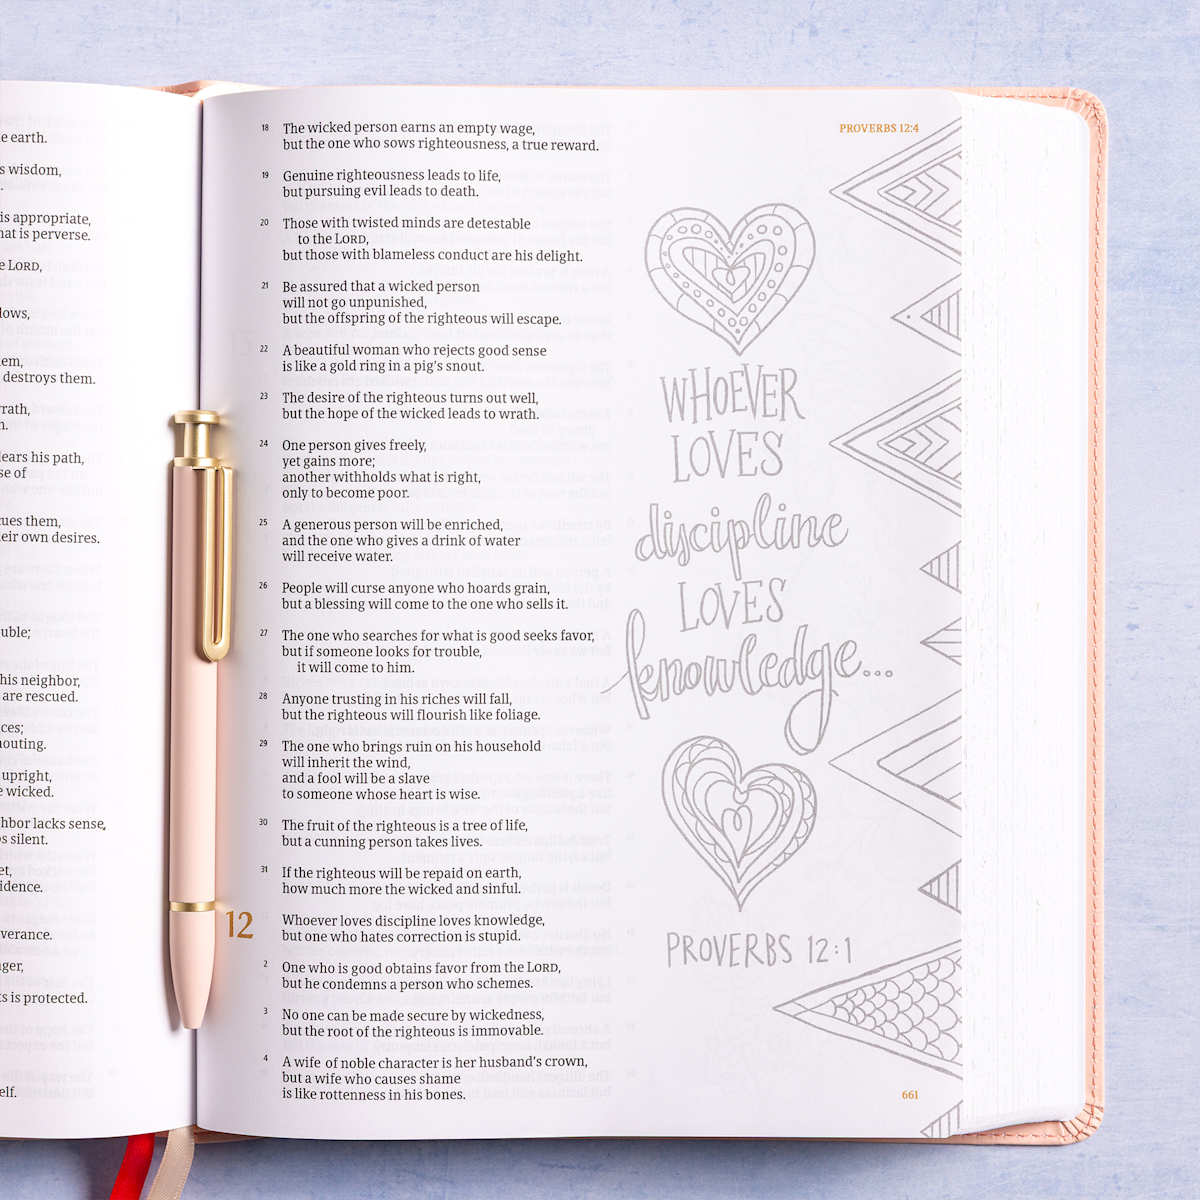 e earth.
s wisdom,
is appropriate,
hat is perverse.
e LORD,
lows,
em,
destroys them.
rath,
ears his path,
se of
ues them,
eir own desires.
uble;
his neighbor,
are rescued.
ces;
outing.
upright,
e wicked.
hbor lacks sense,
s silent.
et,
idence.
verance.
ger,
ts is protected.
elf.
PROVERBS 12:4
18 The wicked person earns an empty wage,
but the one who sows righteousness, a true reward.
19 Genuine righteousness leads to life,
but pursuing evil leads to death.
20 Those with twisted minds are detestable
to the LORD,
but those with blameless conduct are his delight.
21 Be assured that a wicked person
will not go unpunished,
but the offspring of the righteous will escape.
22 A beautiful woman who rejects good sense
is like a gold ring in a pig's snout.
23 The desire of the righteous turns out well,
but the hope of the wicked leads to wrath.
24 One person gives freely,
yet gains more;
another withholds what is right,
only to become poor.
25 A generous person will be enriched,
and the one who gives a drink of water
will receive water.
26 People will curse anyone who hoards grain,
but a blessing will come to the one who sells it.
27 The one who searches for what is good seeks favor,
but if someone looks for trouble,
it will come to him.
28 Anyone trusting in his riches will fall,
but the righteous will flourish like foliage.
29 The one who brings ruin on his household
will inherit the wind,
and a fool will be a slave
to someone whose heart is wise.
30 The fruit of the righteous is a tree of life,
but a cunning person takes lives.
31 If the righteous will be repaid on earth,
how much more the wicked and sinful.
12 Whoever loves discipline loves knowledge,
but one who hates correction is stupid.
2 One who is good obtains favor from the LORD,
but he condemns a person who schemes.
3 No one can be made secure by wickedness,
but the root of the righteous is immovable.
4 A wife of noble character is her husband's crown,
but a wife who causes shame
is like rottenness in his bones.
WHOEVER
LOVES
discipline
LOVES
knowledge...
PROVERBS 12:1
661